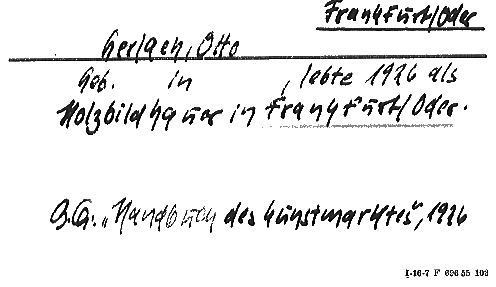 Frankfurt/Oder
Otto
Geb. in , lebte 1926 als
Holzbildhauer in Frankfurt/Oder.
"Handbuch des Kunstmarktes", 1926
I-16-7 F 696 55 103